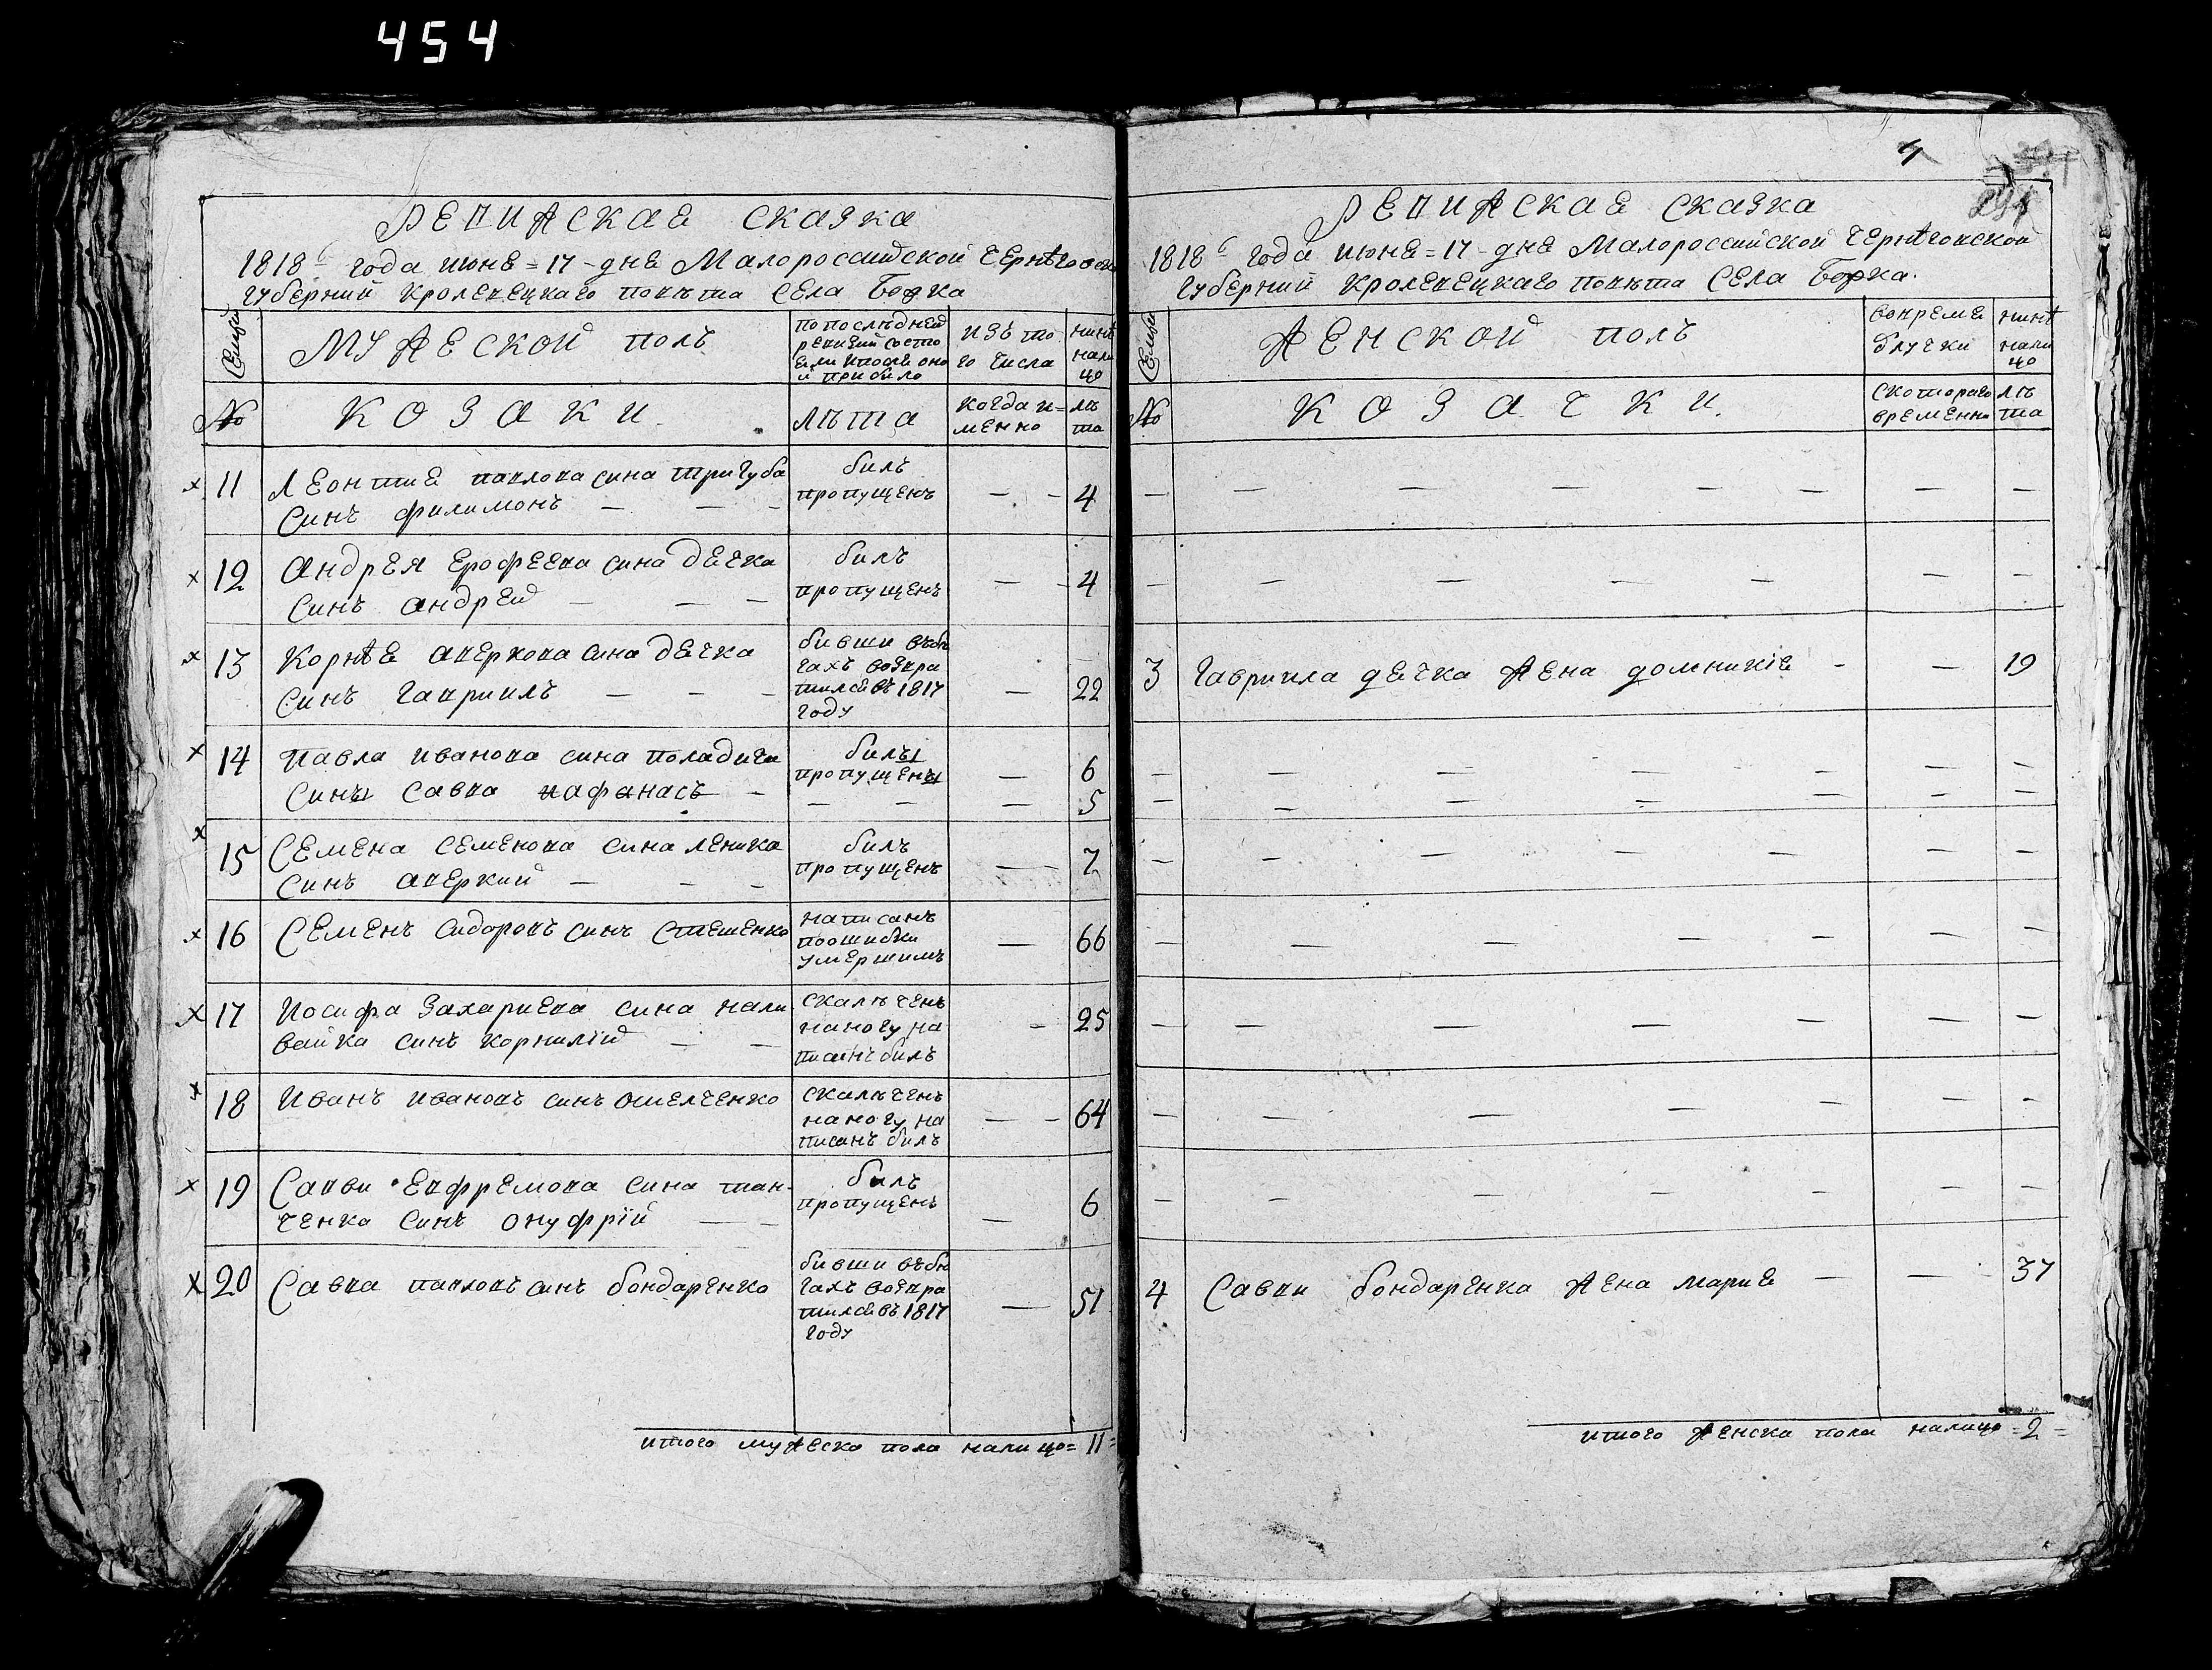 454
РЕВИЖСКАЯ СКАЗКА
1818го года июня = 17 - дня Малороссийской Чернѣговско
губерний Кролевецкаго повѣта Села Бо̂жка
Семьи
МУЖЕСКОЙ полъ
по послѣдней
ревизий состо
яли ипосле оно
й прибило
изъ то
го числа
нинѣ
нали
цо
№
КОЗАКИ.
лѣта
когда и=
менно
лѣ
та
х 11 Леонтие павлова сина тригуба
билъ
Синъ филимонъ — — —
пропущенъ — - 4
х 12 Андрея Ерофеева сина дечка
билъ
Синъ андрей — — —
пропущенъ — - 4
х 13 Корнѣя аверкова сина дечка
Синъ гавриилъ — — —
бивши въбѣ
гахъ возвра
тился въ 1817
году
— 22
х 14 Павла иванова сина
Сины Савва иафанасъ —
билы
пропущены — 6
— — — 5
х 15 Семена семенова сина леника
билъ
Синъ аверкий — — —
пропущенъ — 7
х 16 Семенъ Сидоровъ синъ Стешенко
написанъ
поошибки
умершимъ
— 66
х 17 Иосифа Захариева сина нали
вайка синъ корнилїй — —
скалѣченъ
наногу на
писанъ билъ
- 25
х 18 Иванъ ивановъ синъ
скалѣченъ
наногу на
писанъ билъ
— - 64
х 19 Саввы Евфремова сина тан-
ченка синъ онуфрїй — —
билъ
пропущенъ — 6
х 20 Савва павловъ синъ бондаренко
бивши въбѣ
гахъ возвра
тился въ 1817
году
— 51
итого мужеска пола налицо = 11 =
4
РЕВИЖСКАЯ СКАЗКА
1818го года июня = 17 - дня Малороссийской Чернѣговской
губерний Кролевецкаго повѣта Села Бо̂жка.
Семьи
ЖЕНСКОЙ полъ
вовремя
отлучки
нинѣ
нали
цо
№
КОЗАЧКИ.
скотораго
времени
лѣ
та
3 Гавриила дечка жена домникїя - — 19
4 Савви бондаренка жена мария — — 37
итого женска пола налицо = 2 =